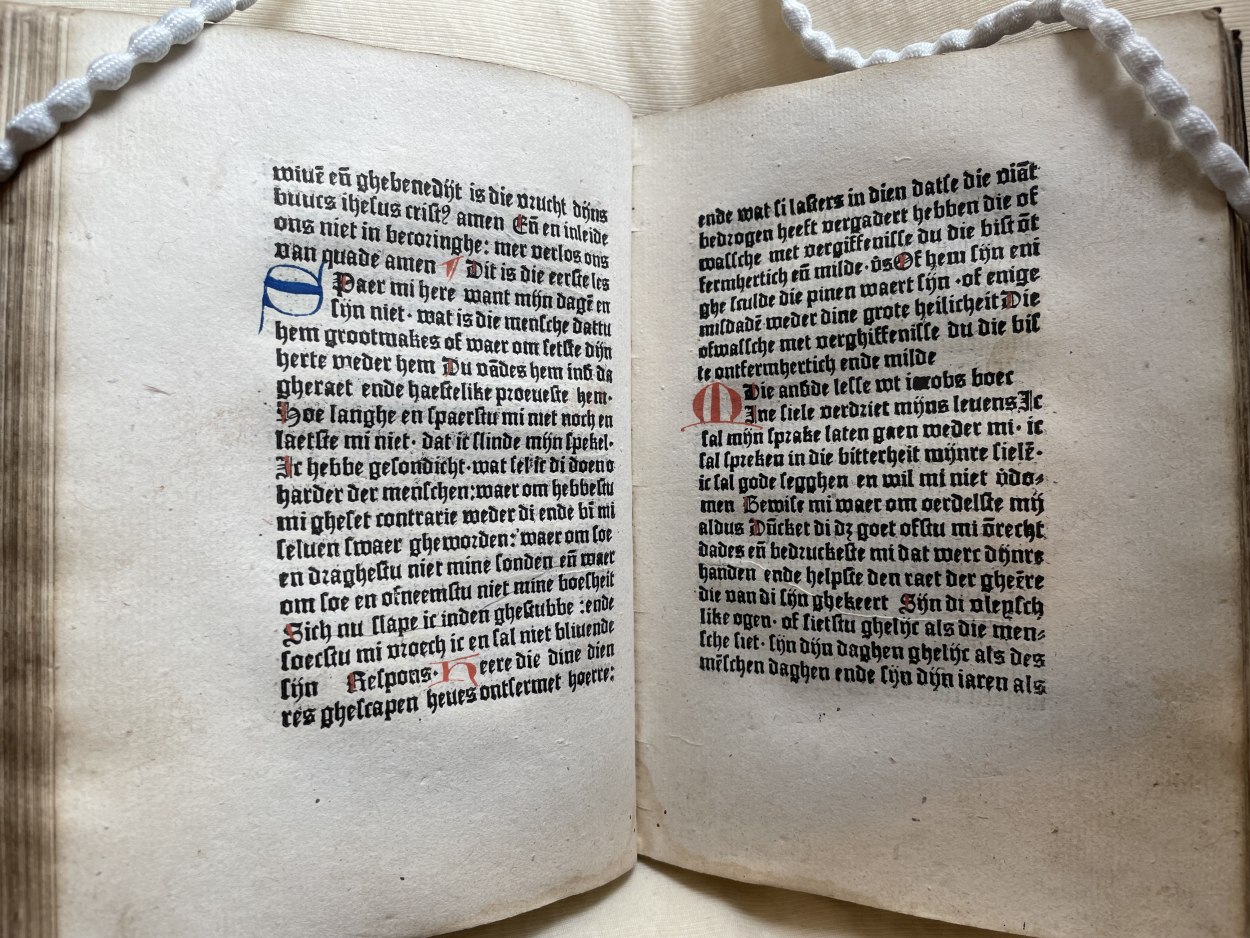 wiuē eñ ghebenedijt is die vrucht dijns
buucs ihesus crist⁹ amen Eñ en inleide
ons niet in becoringhe: mer verlos ons
van quade amen ¶ Dit is die eerste les
S Paer mi here want mijn dagē en
sijn niet · wat is die mensche dattu
hem grootmakes of waer om settste dijn
herte weder hem Du vādes hem inđ da
gheraet ende haestelike proeueste hem·
Hoe langhe en spaerstu mi niet noch en
laetste mi niet · dat ic slinde mijn spekel·
Ic hebbe gesondicht·wat sel ic di doen o
harder der menschen:waer om hebbestu
mi gheset contrarie weder di ende bī mi
seluen swaer gheworden: waer om soe
en draghestu niet mine sonden eñ waer
om soe en ofneemstu niet mine boesheit
Sich nu slape ic inden ghestubbe :ende
soecstu mi vroech ic en sal niet bliuende
sijn Respons· Heere die dine dien
res ghescapen heues ontfermet hoerre:
ende wat si lasters in dien datse die viāt
bedrogen heeft vergadert hebben die of
wassche met vergiffenisse du die bist ōt
fermhertich eñ milde·v̄s Of hem sijn eni
ghe sculde die pinen waert sijn ·of enige
misdadē weder dine grote heilicheit Die
ofwassche met verghiffenisse du die bis
te ontfermhertich ende milde
Die anđde lesse wt iacobs boec
M Ine siele verdriet mijns leuens Ic
sal mijn sprake laten gaen weder mi· ic
sal spreken in die bitterheit mijnre sielē·
ic sal gode segghen en wil mi niet v̄do⸗
men Bewise mi waer om oerdelste mij
aldus Dūcket di dʒ goet ofstu mi ōrecht
dades eñ bedruckeste mi dat werc dijnre
handen ende helpste den raet der gheēre
die van di sijn ghekeert Sijn di vleysch
like ogen· of sietstu ghelijc als die men⸗
sche siet· sijn dijn daghen ghelijc als des
mēschen daghen ende sijn dijn iaren als